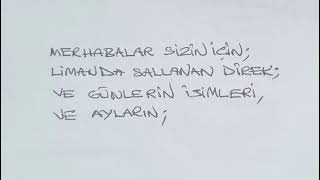 MERHABALAR SİZİN İÇİN;
LİMANDA SALLANAN DİREK;
VE GÜNLERİN İSİMLERİ,
VE AYLARIN;